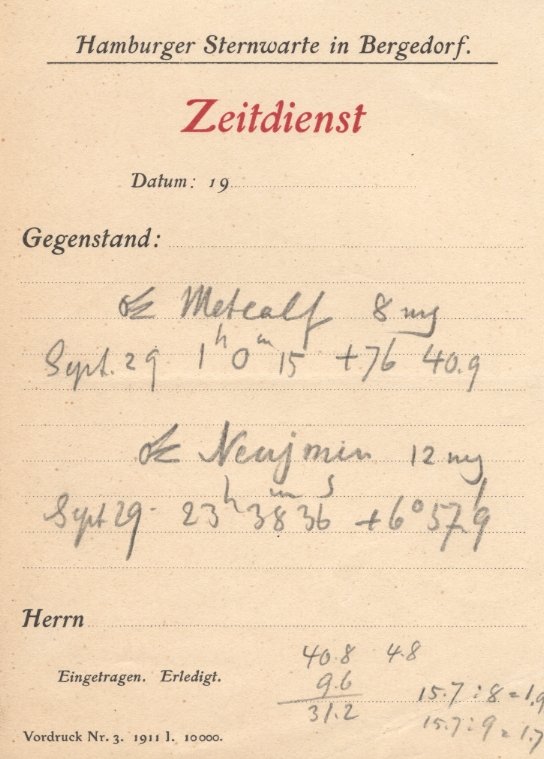 Hamburger Sternwarte in Bergedorf.
Zeitdienst
Datum: 19
Gegenstand:
Metcalf 8 mg
Sept. 29 1h 0m 15 +76 40.9
Neujmin 12 mg
Sept 29 23h 38m 36s +6° 57.'9
Herrn
40.8 4.8
Eingetragen. Erledigt.
9.6
15.7 : 8 = 1.9
31.2
15.7 : 9 = 1.7
Vordruck Nr. 3. 1911 I. 10000.